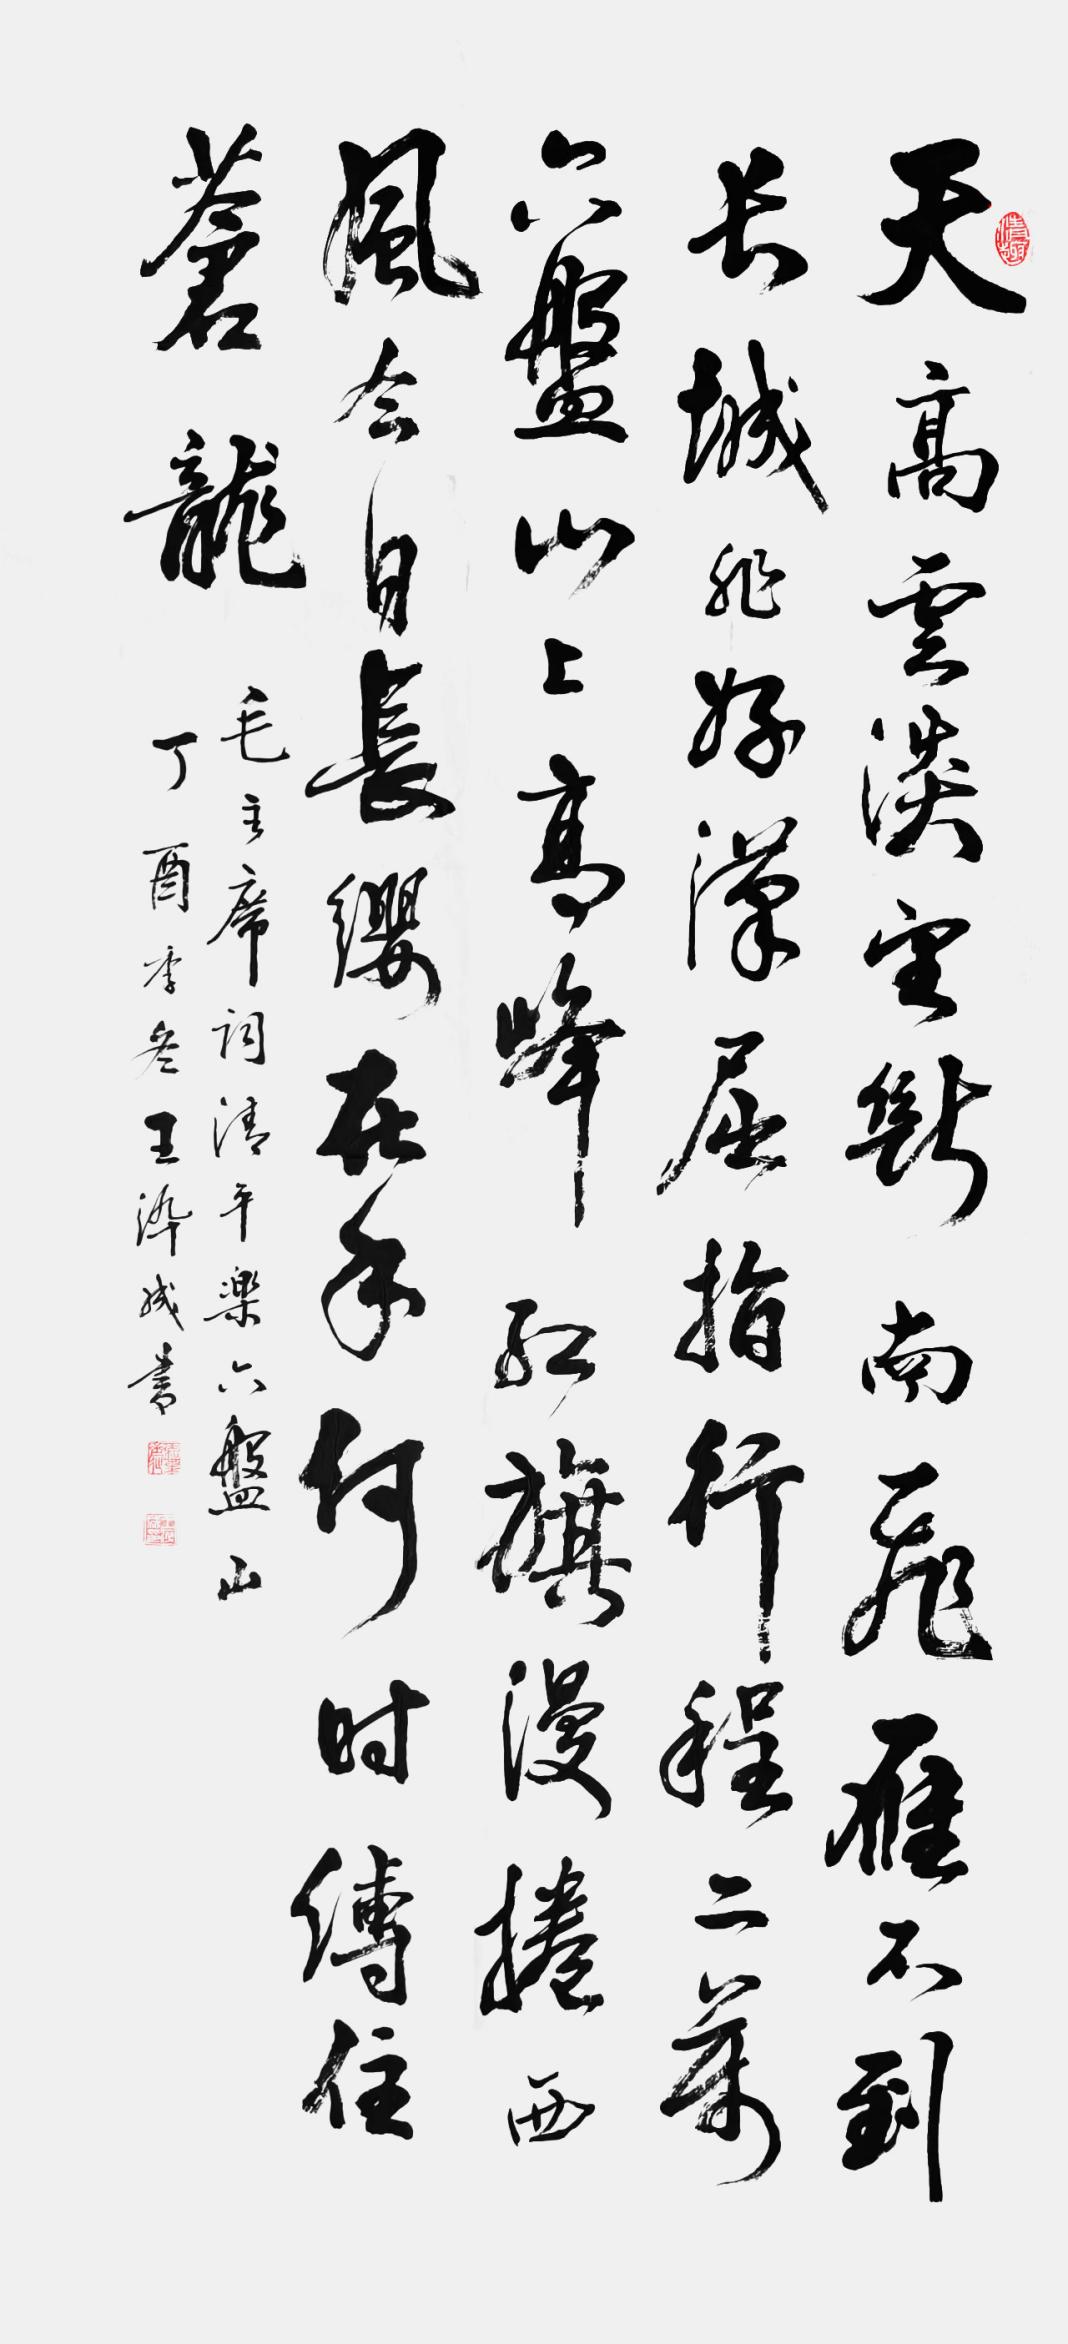 天高雲淡望斷南飛雁不到
长城非好漢屈指行程二萬
六盤山上高峰紅旗漫捲西
風今日長纓在手何时縛住
蒼龍
毛主席詞清平樂六盤山
丁酉季王成書